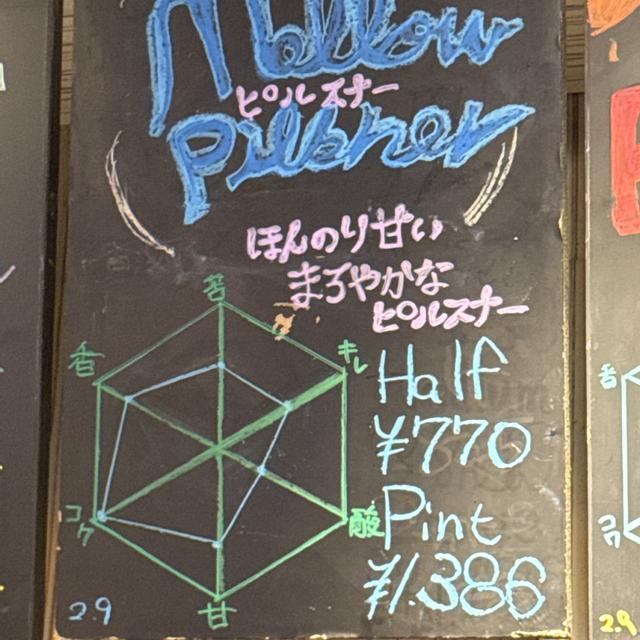 Mellow
ピルスナー
Pilsner
ほんのり甘い
まろやかな
ピルスナー
苦
香
キレ
コク
酸
甘
Half
¥770
Pint
¥1.386
2.9
香
コク
2.9